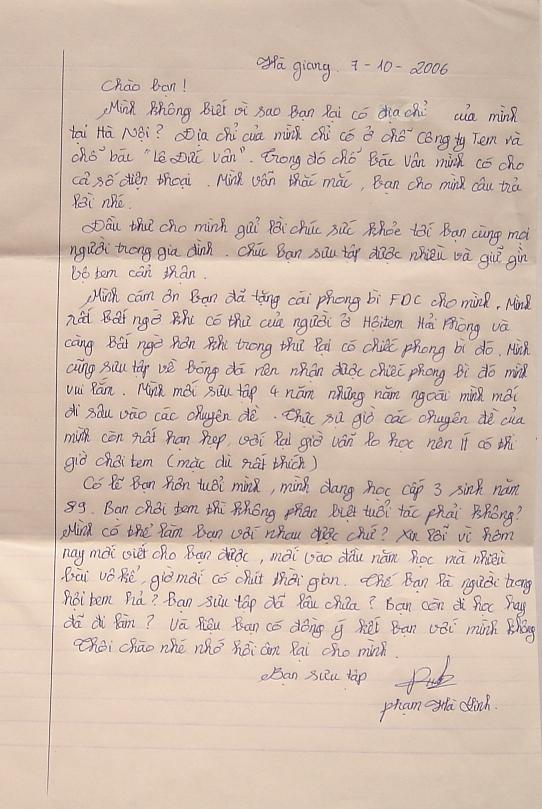 Hà giang. 7-10-2006
Chào bạn!
Mình không biết vì sao Bạn lại có địa chỉ của mình
tại Hà Nội? Địa chỉ của mình chỉ có ở chỗ Công ty Tem và
chỗ bác "Lê Đức Vân". Trong đó chỗ Bác Vân mình có cho
cả số điện thoại. Mình vẫn thắc mắc, Bạn cho mình câu trả
lời nhé.
Đầu thư cho mình gửi lời chúc sức khỏe tới Bạn cùng mọi
người trong gia đình. Chúc Bạn sưu tập được nhiều và giữ gìn
bộ tem cẩn thận.
Mình cảm ơn Bạn đã tặng cái phong bì FDC cho mình. Mình
rất Bất ngờ khi có thư của người ở Hội tem Hải Phòng và
càng Bất ngờ hơn khi trong thư lại có chiếc phong bì đó. Mình
cũng sưu tập về bóng đá nên nhận được chiếc phong bì đó mình
vui lắm. Mình mới sưu tập 4 năm nhưng năm ngoái mình mới
đi sâu vào các chuyên đề. Thực sự giờ các chuyên đề của
mình còn rất hạn hẹp, với lại giờ vẫn lo học nên ít có thì
giờ chơi tem (mặc dù rất thích)
Có lẽ Bạn hơn tuổi mình, mình đang học cấp 3 sinh năm
89. Bạn chơi tem thì không phân biệt tuổi tác phải không?
Mình có thể làm Bạn với nhau được chứ? Xin lỗi vì hôm
nay mới viết cho Bạn được, mới vào đầu năm học mà nhiều
bài vô kể, giờ mới có chút thời gian. Thế Bạn là người trong
hội tem hả? Bạn sưu tập đã lâu chưa? Bạn còn đi học hay
đã đi làm? Và liệu Bạn có đồng ý kết Bạn với mình không
Thôi chào nhé nhớ hồi âm lại cho mình.
Bạn sưu tập
phạm Hà Ninh.